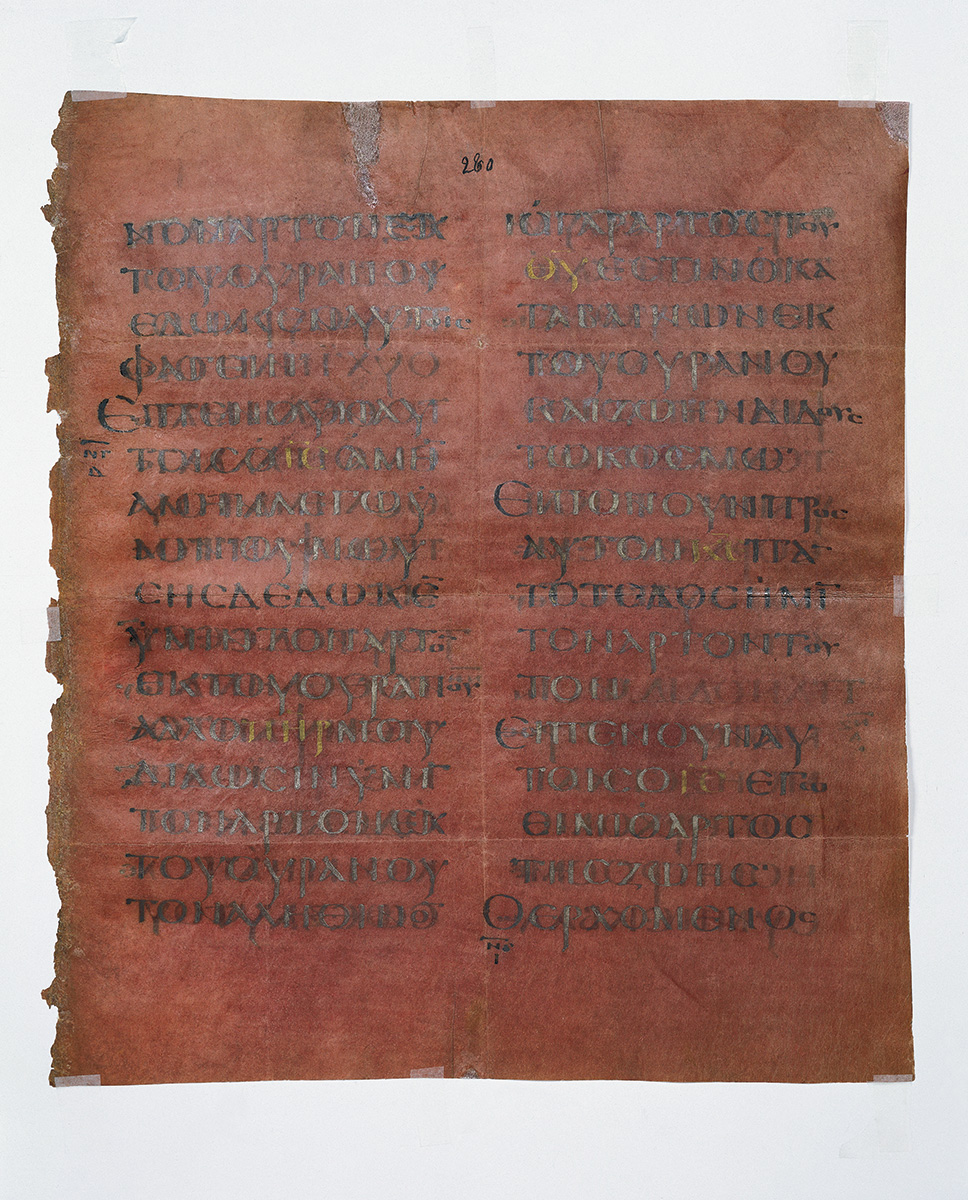 260
ΝΟΝΑΡΤΟΝΕΚ
ΤΟΥΟΥΡΑΝΟΥ
ΕΔΩΚΕΝΑΥΤΟΙϹ
ΦΑΓΕΙΝ
ΕΙΠΕΝΟΥΝΑΥ
ΤΟΙϹΟΙϹ̅ΑΜΗ̅
ΑΜΗΝΛΕΓΩΥ
ΜΙΝΟΥΜΩΥ
ϹΗϹΔΕΔΩΚΕ̅
ΥΜΙΝΤΟΝΑΡΤΟ̅
ΕΚΤΟΥΟΥΡΑΝΟΥ
ΑΛΛΟΠΗ̅Ρ̅ΜΟΥ
ΔΙΔΩϹΙΝΥΜΙ̅
ΤΟΝΑΡΤΟΝΕΚ
ΤΟΥΟΥΡΑΝΟΥ
ΤΟΝΑΛΗΘΙΝΟ̅
ΟΓΑΡΑΡΤΟϹΤΟΥ
Θ̅Υ̅ΕϹΤΙΝΟΚΑ
ΤΑΒΑΙΝΩΝΕΚ
ΤΟΥΟΥΡΑΝΟΥ
ΚΑΙΖΩΗΝΔΙΔΟΥϹ
ΤΩΚΟϹΜΩ
ΕΙΠΟΝΟΥΝΠΡΟϹ
ΑΥΤΟΝΚ̅Ε̅ΠΑ̅
ΤΟΤΕΔΟϹΗΜΙ̅
ΤΟΝΑΡΤΟΝΤΟΥ
ΤΟΝ
ΕΙΠΕΝΟΥΝΑΥ
ΤΟΙϹΟΙ̅Ϲ̅ΕΓΩ
ΕΙΜΙΟΑΡΤΟϹ
ΤΗϹΖΩΗϹ
ΟΕΡΧΟΜΕΝΟϹ